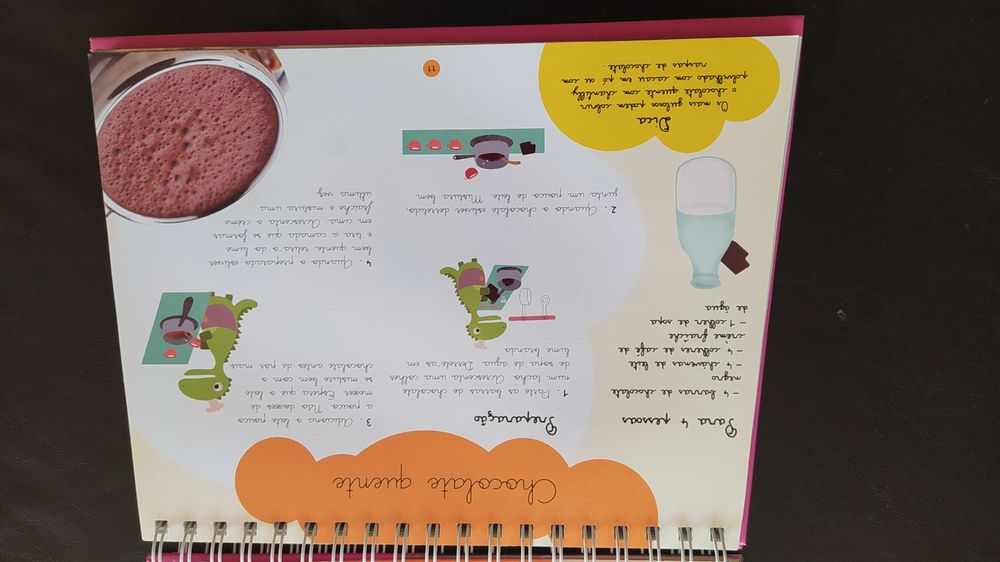 Chocolate quente
Para 4 pessoas
- 4 barras de chocolate
negro
- 4 chávenas de leite
- 4 colheres de café de
crème fraîche
- 1 colher de sopa
de água
Preparação
1. Parte as barras de chocolate
num tacho. Acrescenta uma colher
de sopa de água. Derrete-as em
lume brando.
2. Quando o chocolate estiver derretido,
junta um pouco de leite. Mistura bem.
3. Adiciona o leite pouco
a pouco. Não deixes de
mexer. Espera que o leite
se misture bem com o
chocolate antes de pôr mais.
4. Quando o preparado estiver
bem quente, retira-o do lume
e tira a camada que se formar
em cima. Acrescenta o crème
fraîche e mistura uma
última vez.
Dica
Os mais gulosos podem cobrir
o chocolate quente com chantilly
polvilhado com cacau em pó ou com
raspas de chocolate.
11